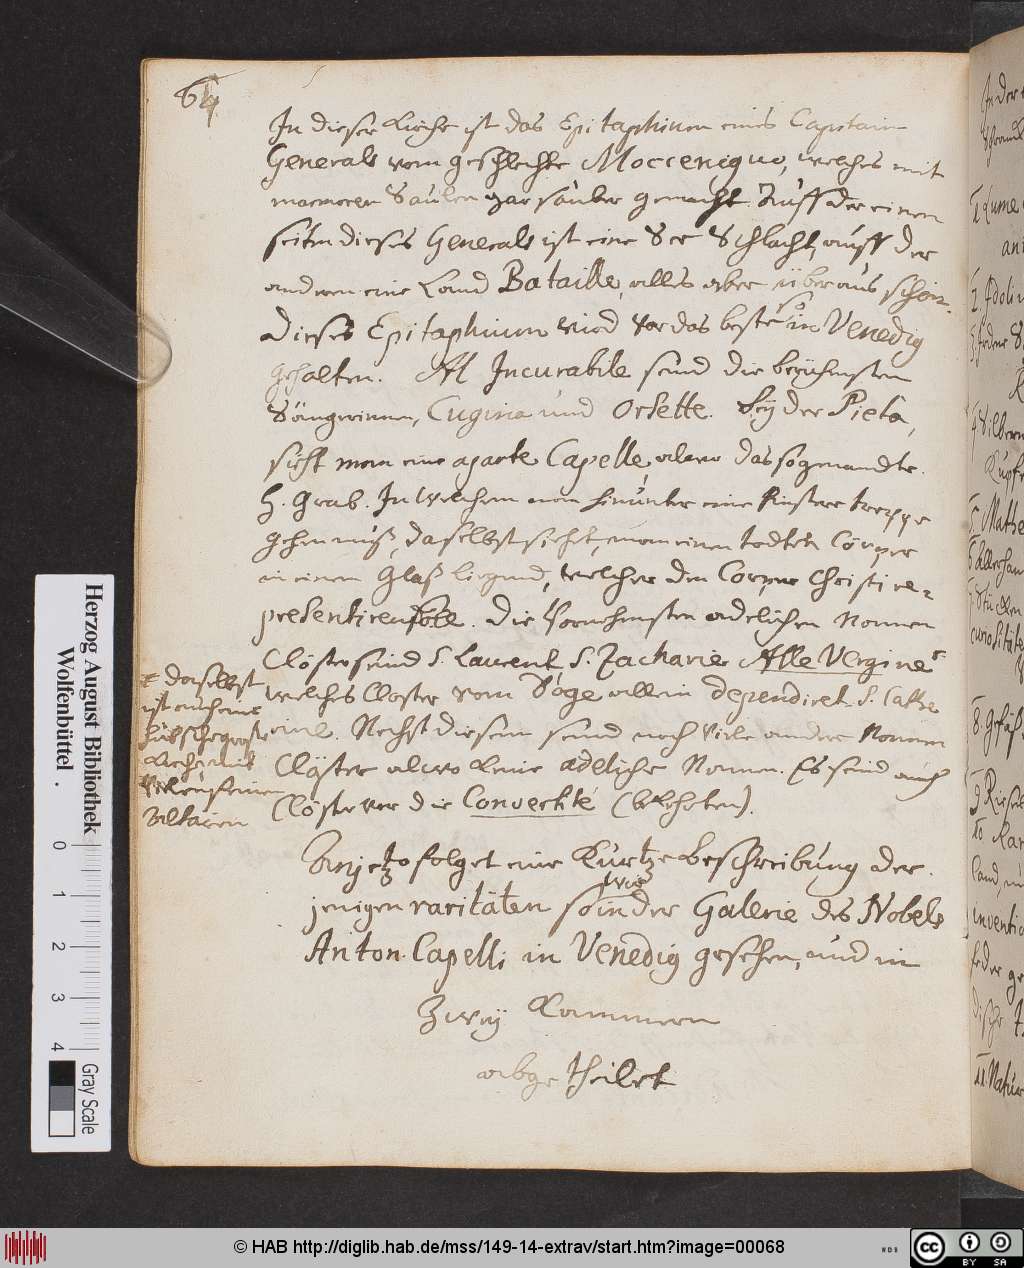 64
In dieser Kirche ist das Epitaphium eines Capitain
Generals vom geschlechte Moccenequo, welches mit
marmorer Säulen gar sauber gemacht. Auff der einen
seiten dieses Generals ist eine See Schlacht, auff der
andren eine Land Bataille, alles aber überaus schön.
Dieses Epitaphium wird vor das beste so in Venedig
gehalten. Al Incurabile seind die berühmsten
Sängerinnen, Cugina und Orsette. Bey der Pieta,
sieht man eine aparte Capelle, alwo das sogenandte
H. Grab. In welchem man hinunter eine finstere treppe
gehen muß, daselbst sieht man einen todten Cörper
in einem Glaß liegend, welcher den Corpus Christi re-
presentiren solte. Die Vornehmsten adelichen Nonnen
Clöster seind S. Laurent S. Zacharie Alle Vergine
welches Closter vom Doge allein dependiret S. Cathe
rine. Nechst diesem seind noch viele andere Nonnen
Clöster alwo keine adeliche Nonnen. Es seind auch
Clöster vor die Convertite (bekehrten).
daselbst
ist auch eine
hübsche grosse
Kirche mit
seinen
Altären
Anjetzo folget eine Kurtze beschreibung der
jenigen raritäten so wir in der Galerie des Nobels
Anton Capelli in Venedig gesehen, und in
Zwey Kammern
abgetheilet
In der
Lume
Silbern
Kupfe
Allerhan
Stücken
curiosität
8. Gefäß
9 Riesen
10
land
inventi
11 Natur
Herzog August Bibliothek
Wolfenbüttel
0 1 2 3 4
Gray Scale
© HAB http://diglib.hab.de/mss/149-14-extrav/start.htm?image=00068
WDB
cc
BY SA